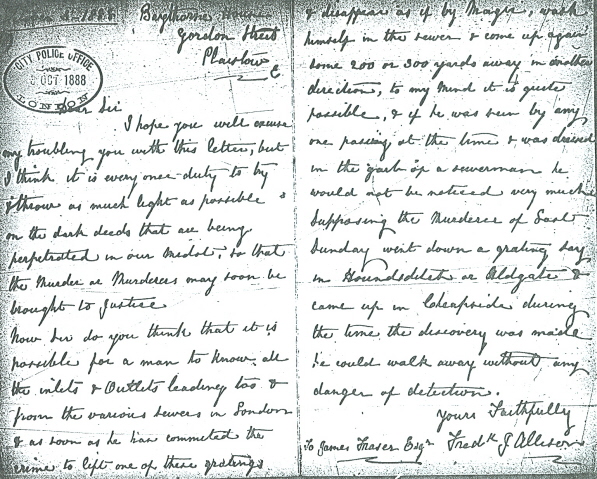 1888 Bergthorne House
Gordon Street
Plaistow
E
CITY POLICE OFFICE
OCT 1888
LONDON
Dear Sir
I hope you will excuse
my troubling you with this letter, but
I think it is every ones duty to try
& throw as much light as possible
on the dark deeds that are being
perpetrated in our midst, so that
the Murder or Murderers may soon be
brought to Justice
Now Sir do you think that it is
possible for a man to know all
the inlets & Outlets leading too &
from the various sewers in London
& as soon as he has commited the
crime to lift one of these gratings
& disappear as if by Magic, wash
himself in the sewer & come up again
some 200 or 300 yards away in another
direction, to my mind it is quite
possible, & if he was seen by any
one passing at the time & was dressed
in the garb of a sewerman he
would not be noticed very much
Supposing the Murderer of East
Sunday went down a grating say
in Houndsditch or Aldgate &
came up in Cheapside during
the time the discovery was made
he could walk away without any
danger of detection.
Yours Faithfully
To James Fraser Esqr Fredk J Allison